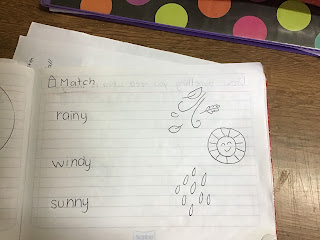 Match
rainy
windy
sunny